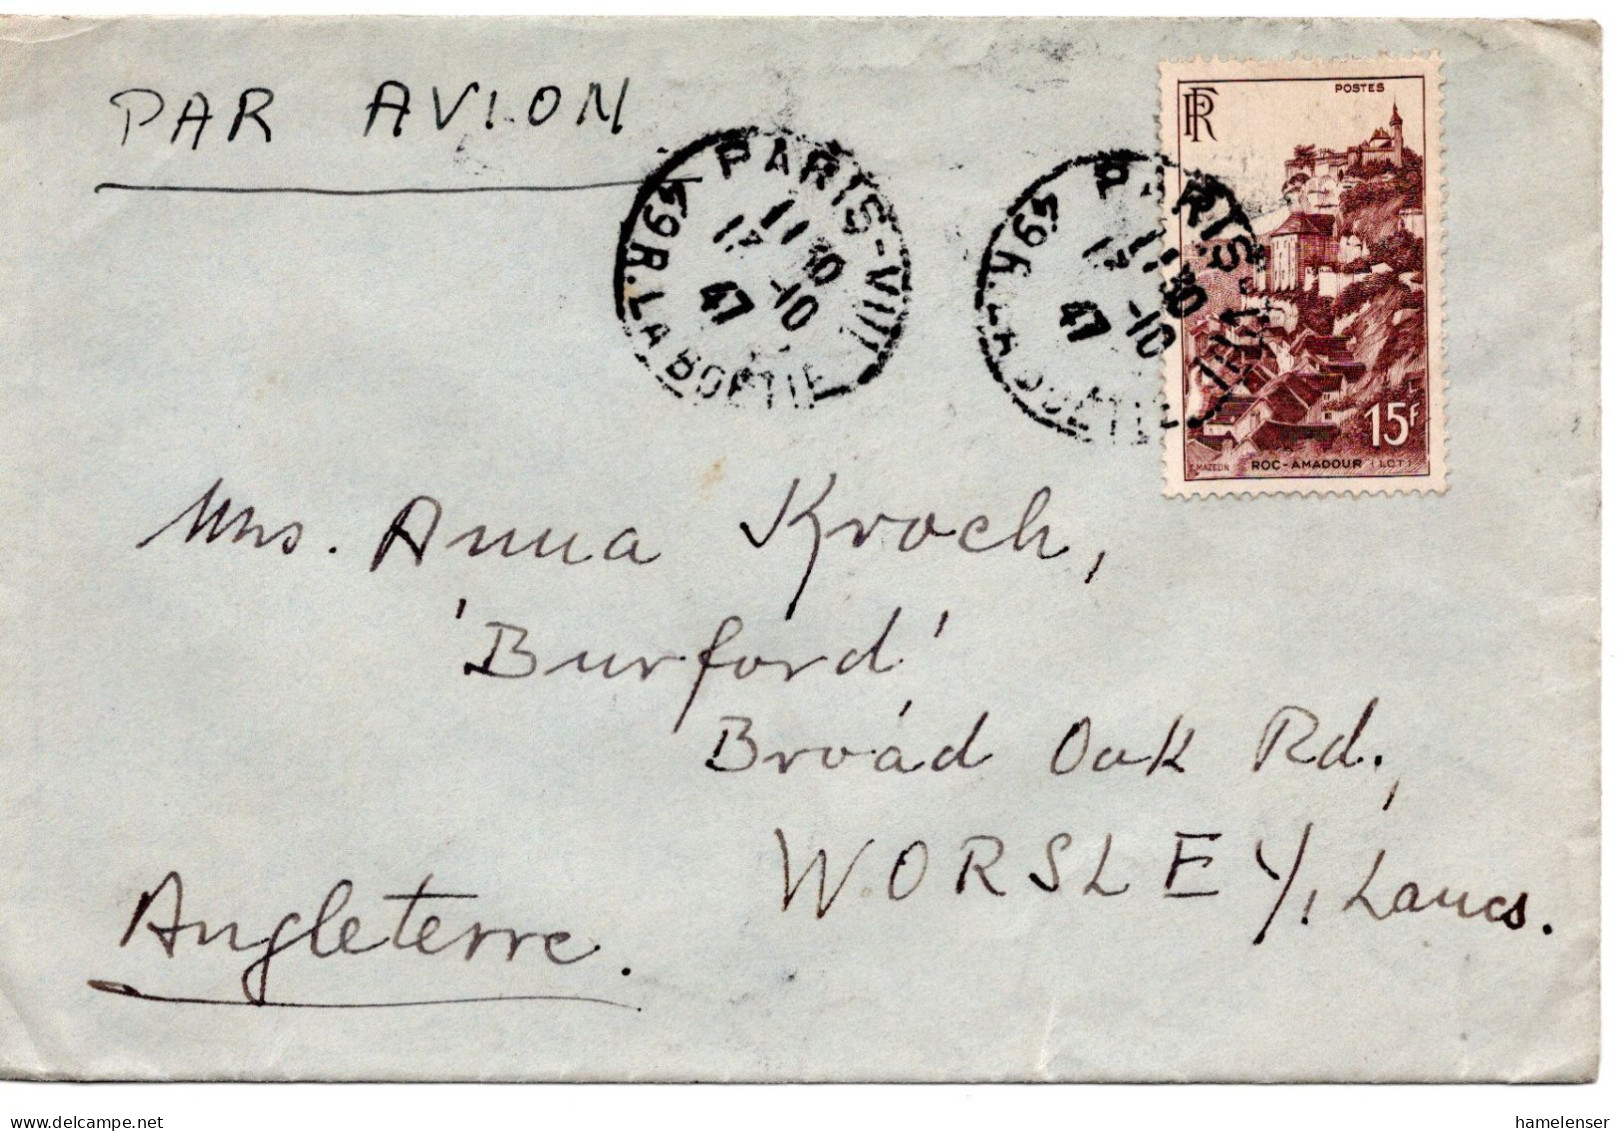 PAR AVION
POSTES
RF
PARIS-VIII
11 30
-10
47
65 R. LA BOETIE
PARIS-VIII
11 30
-10
47
15F
MAZELIN ROC-AMADOUR (LOT)
Mrs. Anna Kroch,
'Burford'
Broad Oak Rd.,
WORSLEY, Lancs.
Angleterre.
www.delcampe.net
hamelenser